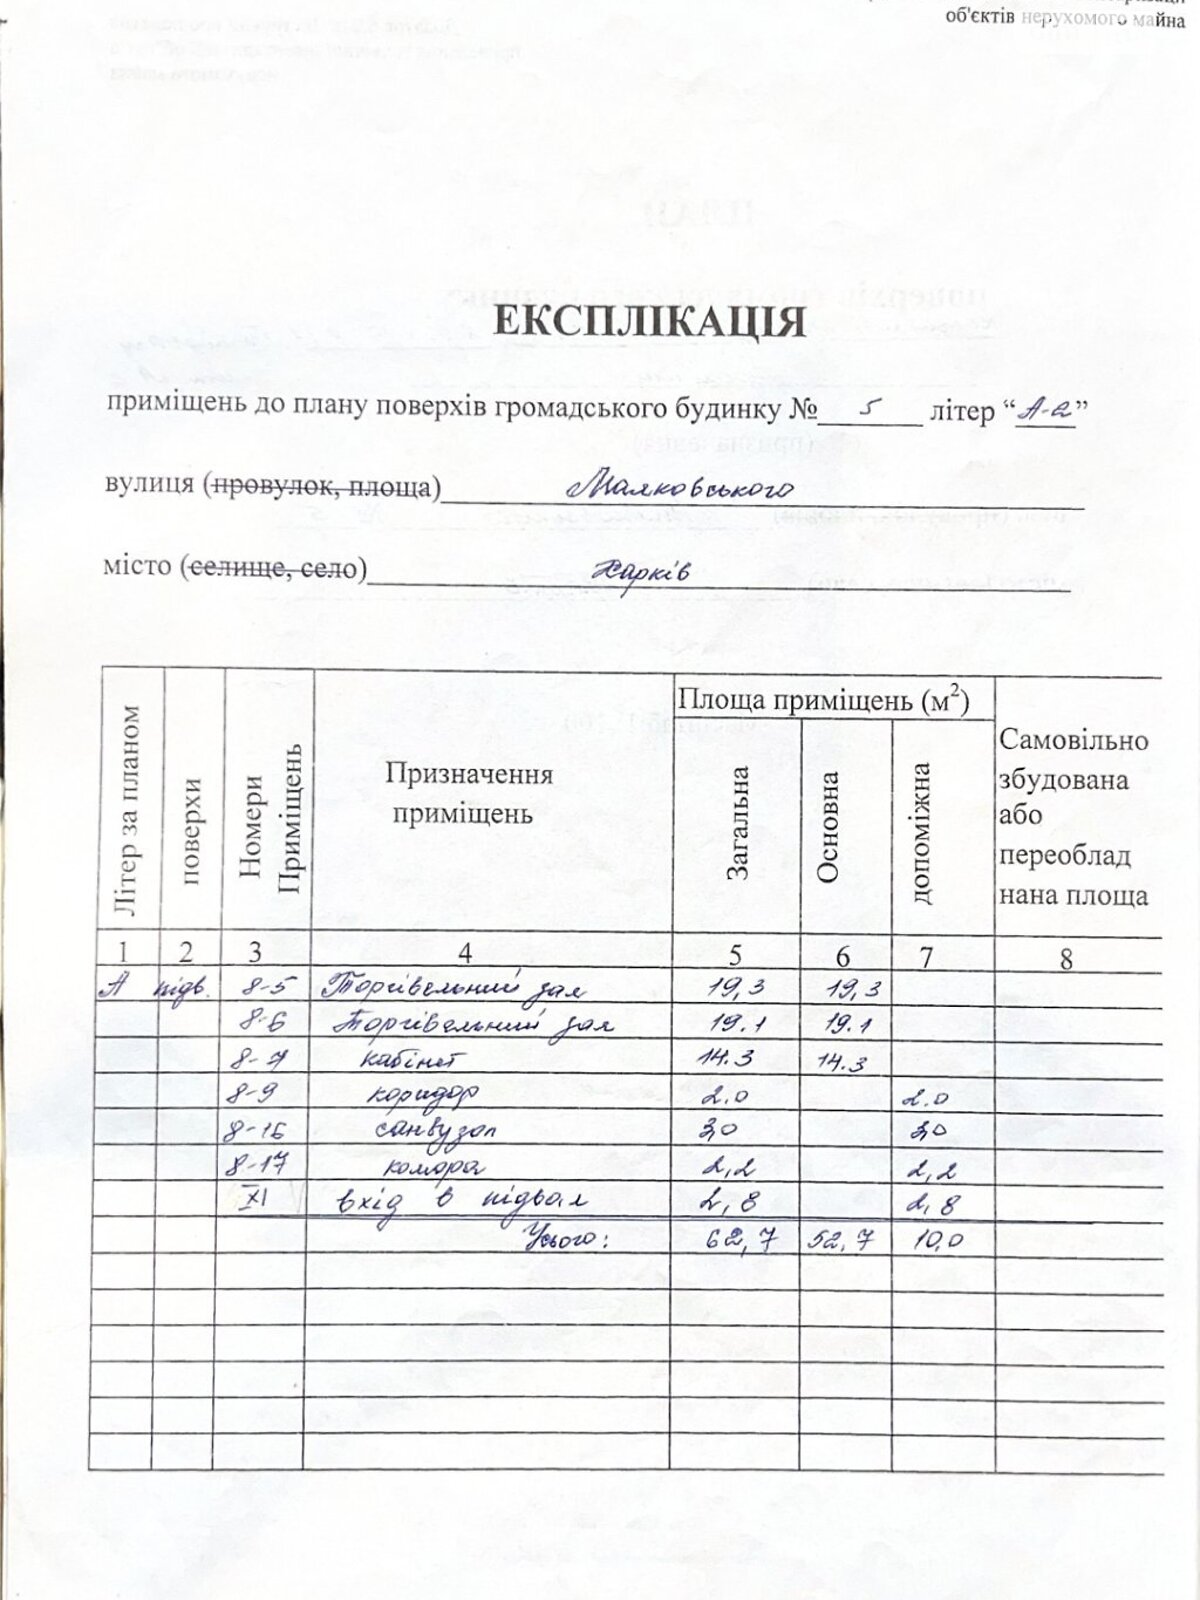 об'єктів нерухомого майна
ЕКСПЛІКАЦІЯ
приміщень до плану поверхів громадського будинку № 5 літер “А-2”
вулиця (провулок, площа) Маяковського
місто (селище, село) Харків
Літер за планом
поверхи
Номери Приміщень
Призначення приміщень
Площа приміщень (м²)
Загальна
Основна
допоміжна
Самовільно збудована або переоблад нана площа
1 2 3 4 5 6 7 8
А підв. 8-5 Торгівельний зал 19,3 19,3
8-6 Торгівельний зал 19.1 19.1
8-7 кабінет 14.3 14.3
8-9 коридор 2.0 2.0
8-16 санвузол 3,0 3,0
8-17 комора 2,2 2,2
XI вхід в підвал 2,8 2,8
Усього: 62,7 52,7 10,0